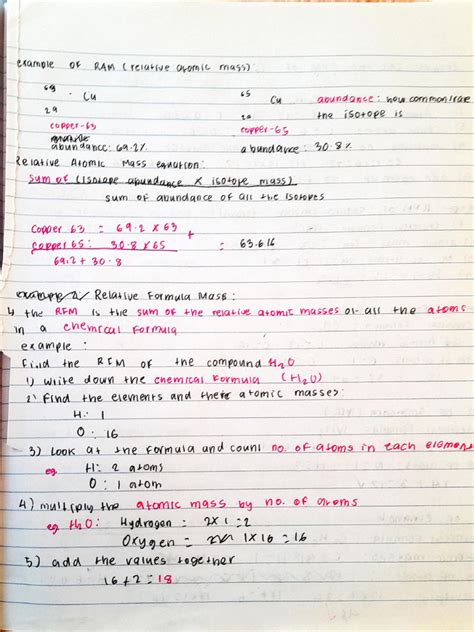 example of RAM (relative atomic mass):
63 Cu 65 Cu abundance: how common/rare
29 29 the isotope is
copper-63 copper-65
abundance: 69.2% abundance: 30.8%
Relative Atomic Mass equation:
sum of (isotope abundance x isotope mass)
sum of abundance of all the isotopes
copper 63 = 69.2 x 63 +
copper 65: 30.8 x 65 = 63.616
69.2 + 30.8
example 2: Relative Formula Mass:
↳ the RFM is the sum of the relative atomic masses of all the atoms
in a chemical formula
example:
find the RFM of the compound H2O
1) write down the chemical formula (H2O)
2) Find the elements and their atomic masses:
H: 1
O: 16
3) Look at the formula and count no. of atoms in each element
eg H: 2 atoms
O: 1 atom
4) multiply the atomic mass by no. of atoms
eg H2O: Hydrogen = 2x1 = 2
Oxygen = 1x16 = 16
5) add the values together
16+2 = 18